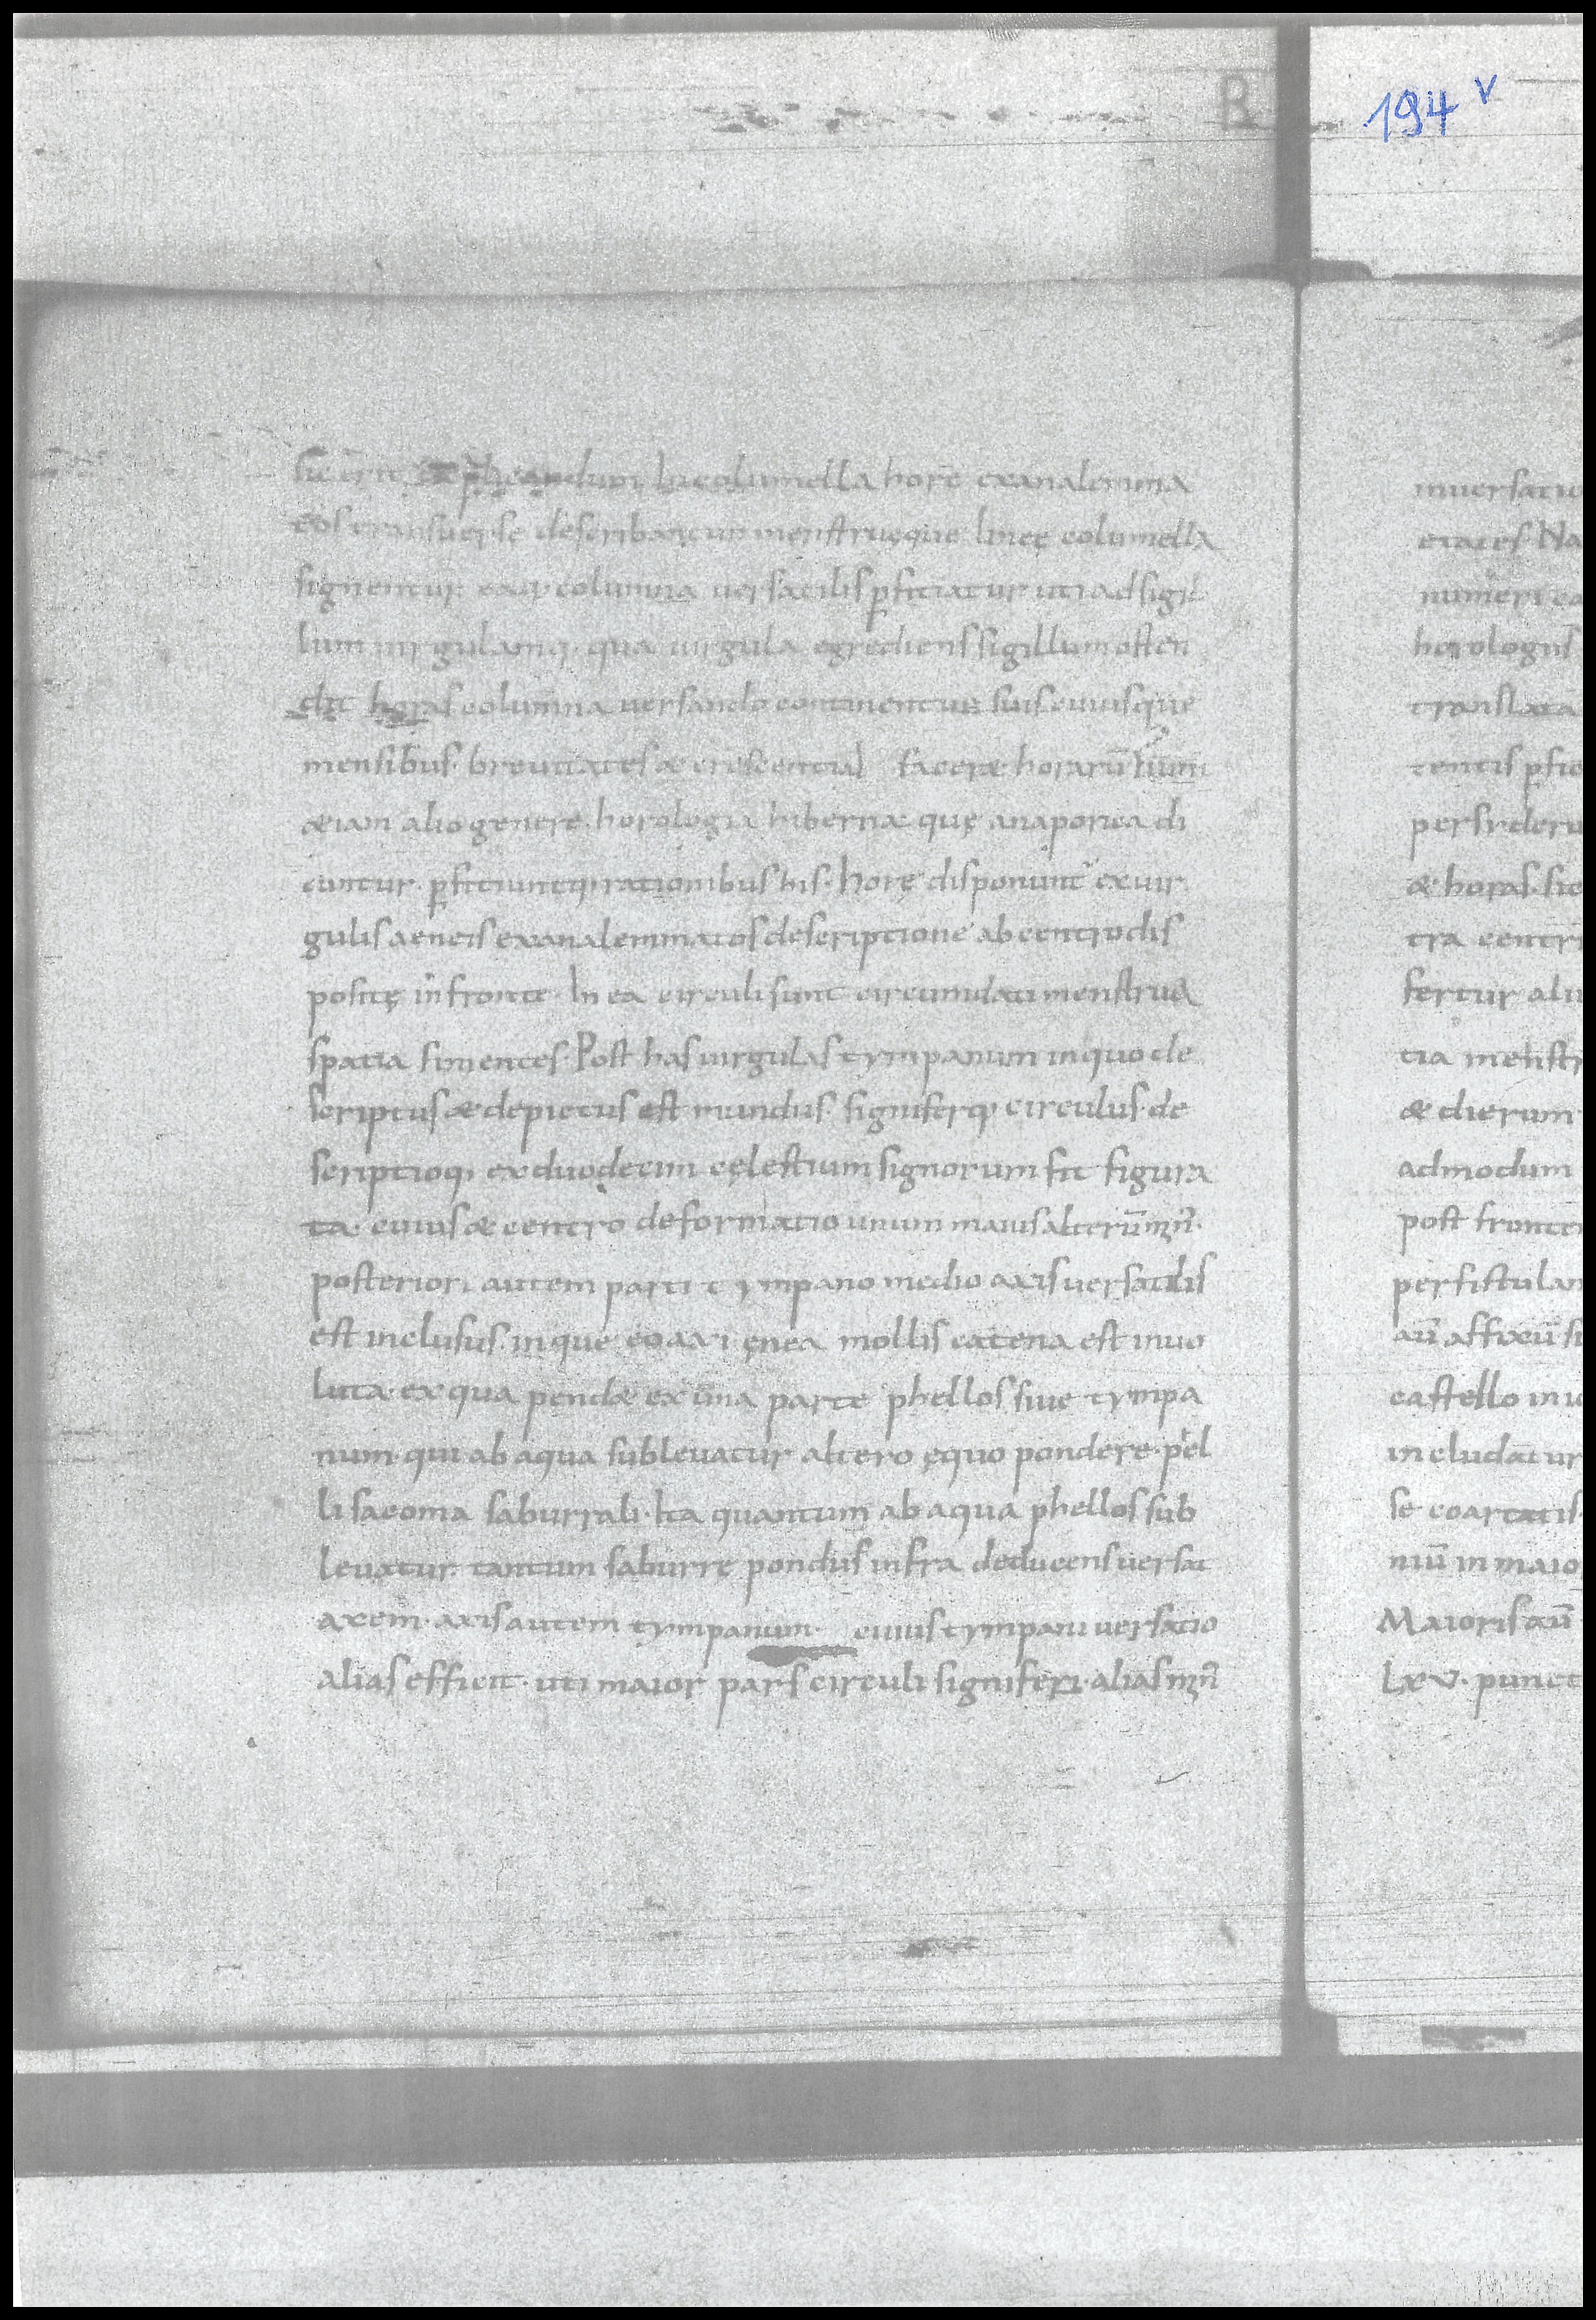 194 v
sic erit explicandum. In columella horę exanalemma
tos transuerse describantur menstruęque linę columella
signentur eaq; columna uersatilis ꝑficiatur uti ad sigil
lum uirgulamq; qua uirgula egrediens sigillum osten
dit horas columna uersando continentur suis cuiusque
mensibus. breuitates & crescentias Facere horarū
&iam alio genere. horologia hibernaque anaporica di
cuntur. ꝑficiuntq; rationibus his. Horę disponunt̃ ex uir
gulis aeneis exanalemmatos descriptione a centro dis
positę in fronte. In ea circuli sunt circumdati menstrua
spatia finientes. Post has uirgulas tympanum in quo de
scriptus & depictus est mundus. signiferq; circulus. de
scriptioq; ex duodecim cęlestium signorum fit figura
ta. cuius & centro deformatio unum maius alterū min̄.
posteriori autem parti tympano medio axis uersatilis
est inclusus. inque eo axi ęnea mollis catena est inuo
luta. ex qua pend& ex una parte phellos siue tympa
num. qui ab aqua subleuatur altero ęquo pondere. phel
li sacoma saburrali. Ita quantum ab aqua phellos sub
leuatur. tantum saburrę pondus infra deducens uersat
axem. axis autem tympanum. cuius tympani uersatio
alias efficit. uti maior pars circuli signiferi. alias min̄
inuersatio
horologiis
translata
tentis ꝑfic
& horas. sic
tra centri
fertur aliu
tia menstr
& dierum
admodum
post fronte
per fistulam
castello in
includatur
se coartatis
niū in maio
Maioris aū
Lxv. punct